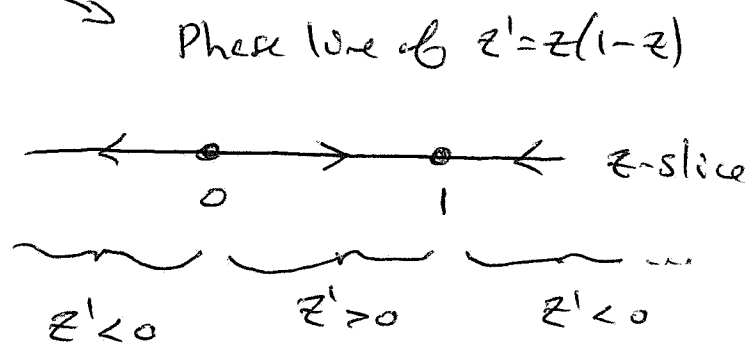 Phase line of z'=z(1-z)
z-slice
0 1
z'<0 z'>0 z'<0 ...